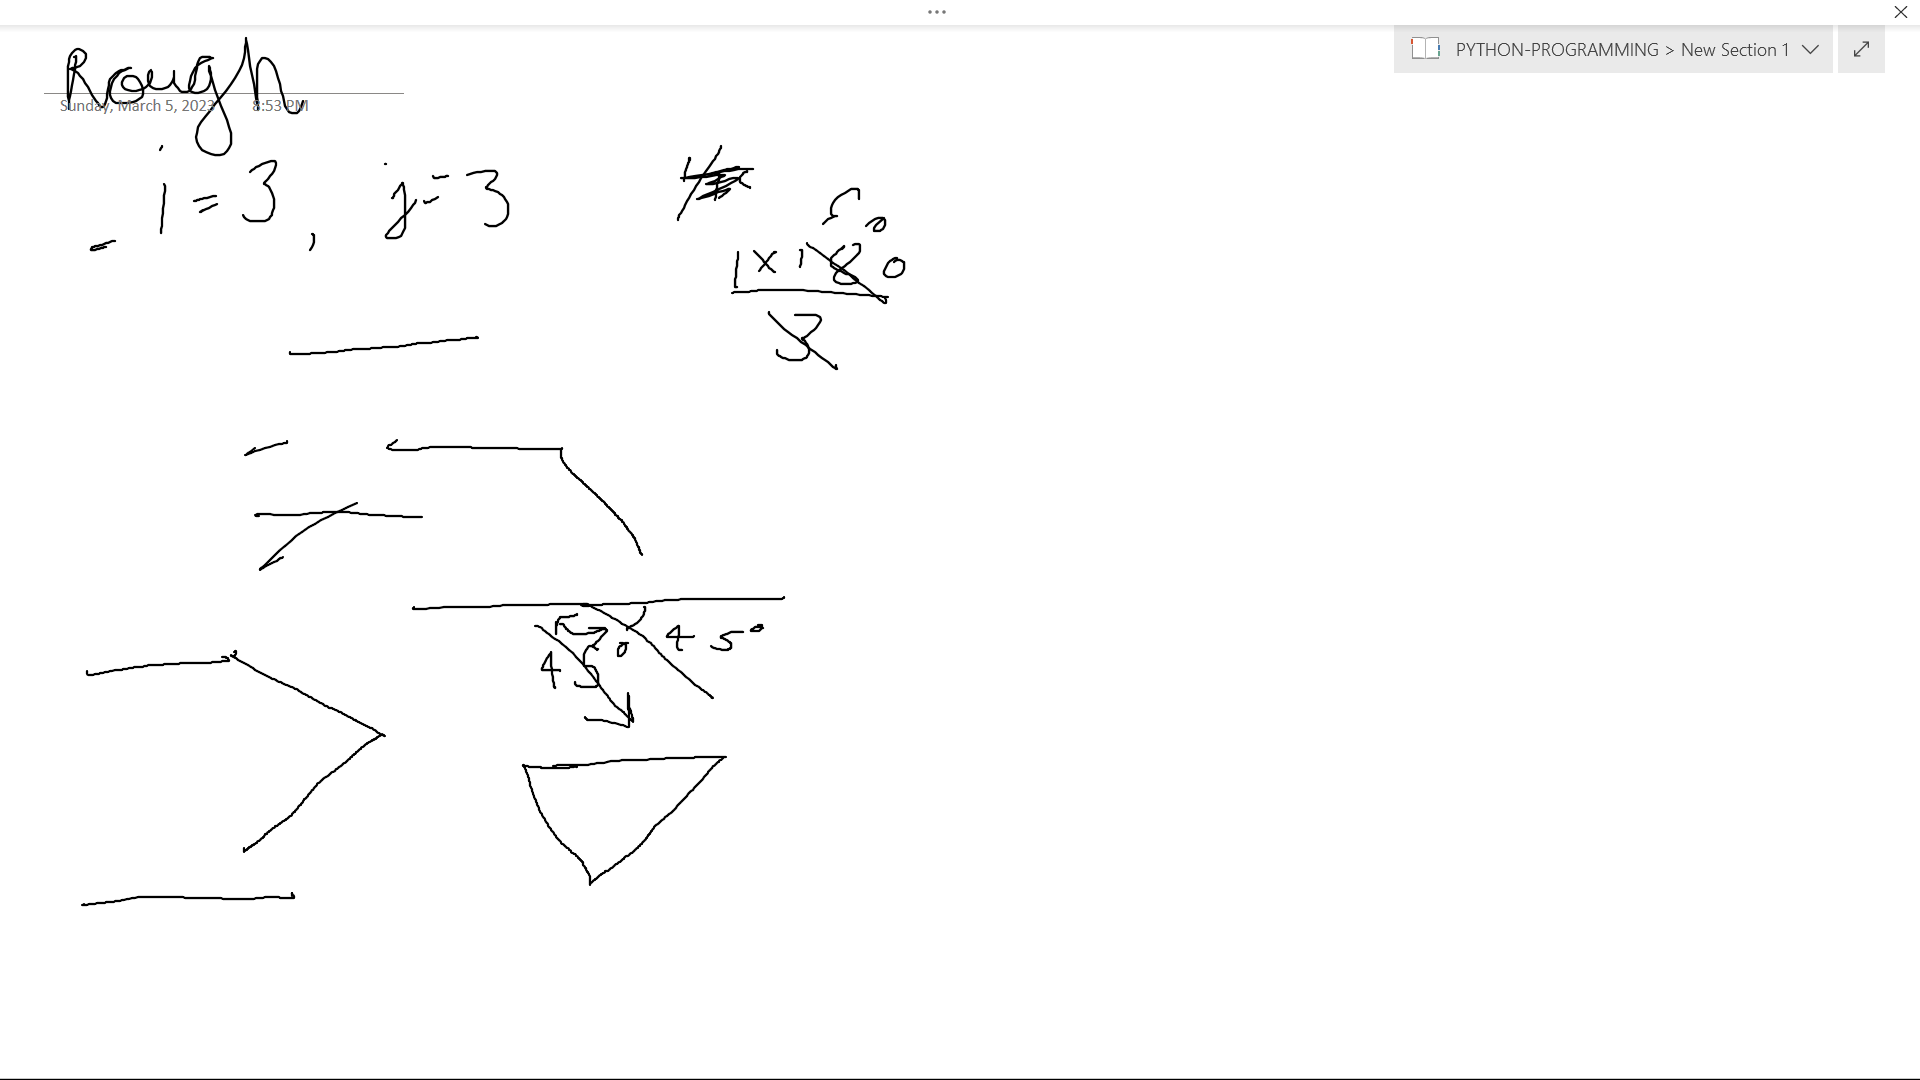 PYTHON-PROGRAMMING > New Section 1
Rough
Sunday, March 5, 2023 8:53 PM
i = 3, j = 3
60
1 x 180
3
45°
45°